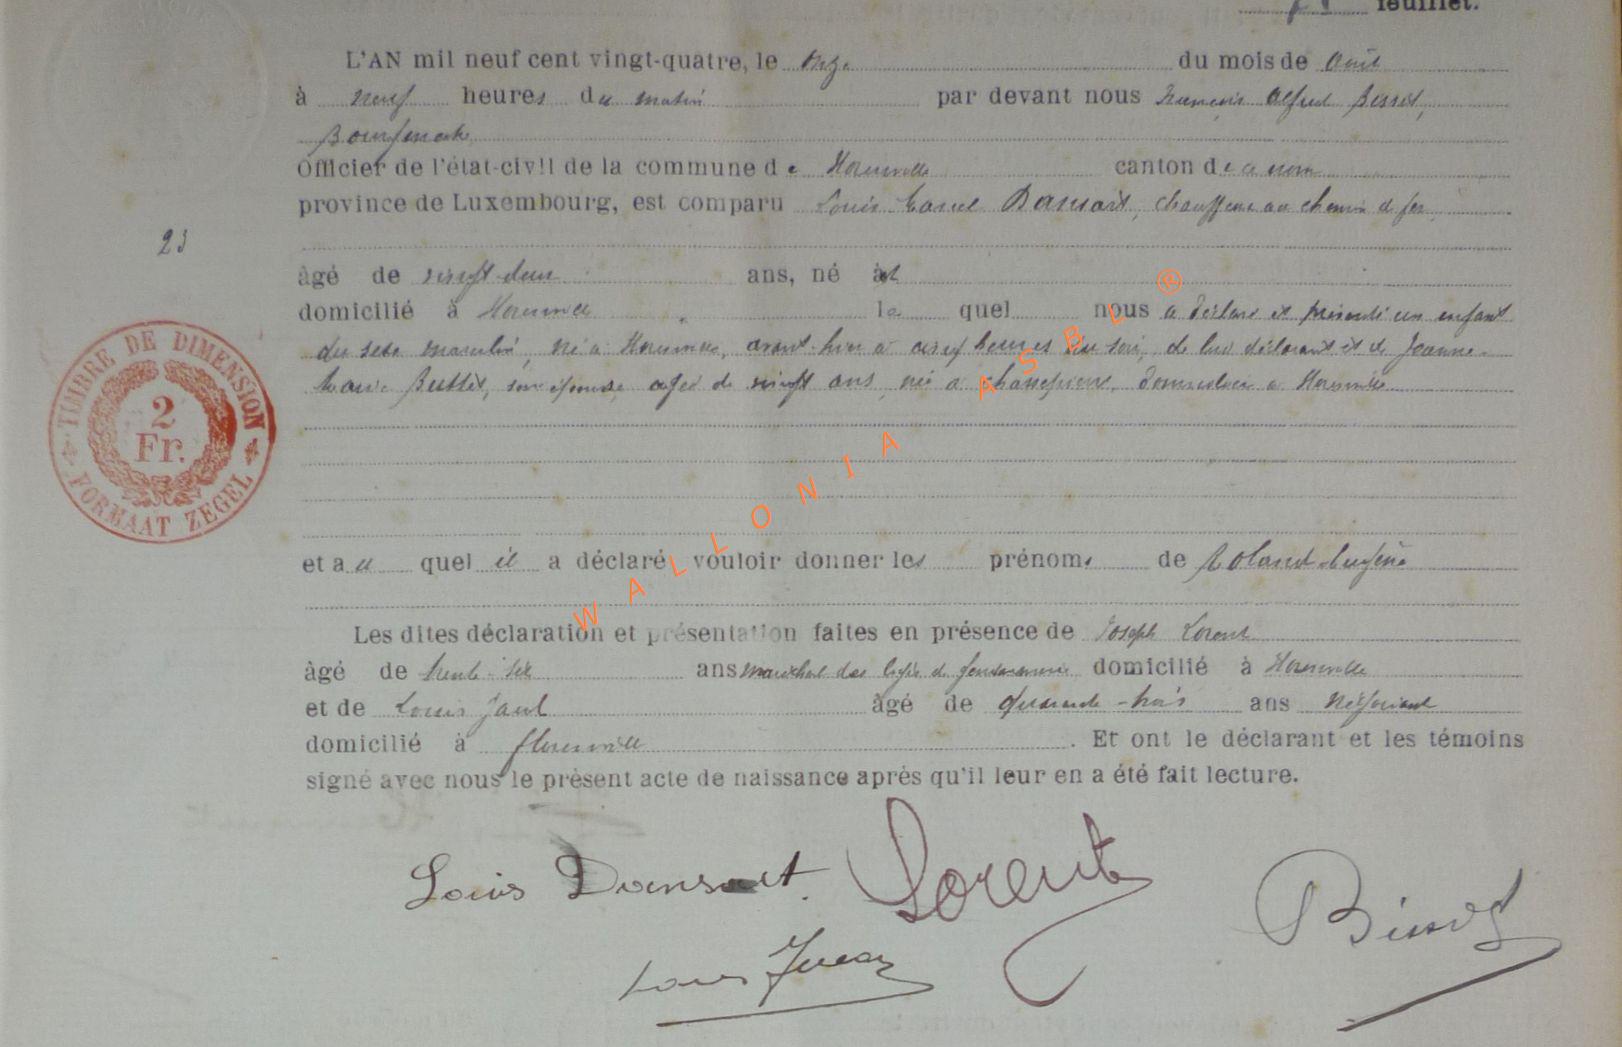 feuillet.
L'AN mil neuf cent vingt-quatre, le onze du mois de Août
à neuf heures du matin par devant nous François Alfred Bissot,
Bourgmestre
Officier de l'état-civil de la commune de Florenville canton de ce nom
province de Luxembourg, est comparu Louis Dansart, chauffeur au chemin de fer,
23
âgé de vingt-deux ans, né à
domicilié à Florenville lequel nous a déclaré et présenté un enfant
du sexe masculin, né à Florenville, avant-hier à heures du soir, de lui déclarant et de Jeanne-
son épouse, âgée de vingt ans, née à domiciliée à Florenville
TIMBRE DE DIMENSION
2
Fr.
FORMAAT ZEGEL
et au quel il a déclaré vouloir donner les prénoms de Roland Eugène
Les dites déclaration et présentation faites en présence de Joseph Lorent
âgé de trente-six ans maréchal des logis de gendarmerie domicilié à Florenville
et de Louis âgé de quarante-trois ans négociant
domicilié à Florenville. Et ont le déclarant et les témoins
signé avec nous le présent acte de naissance après qu'il leur en a été fait lecture.
Louis Dansart. Lorent
Bissot
Louis
WALLONIA ASBL ®